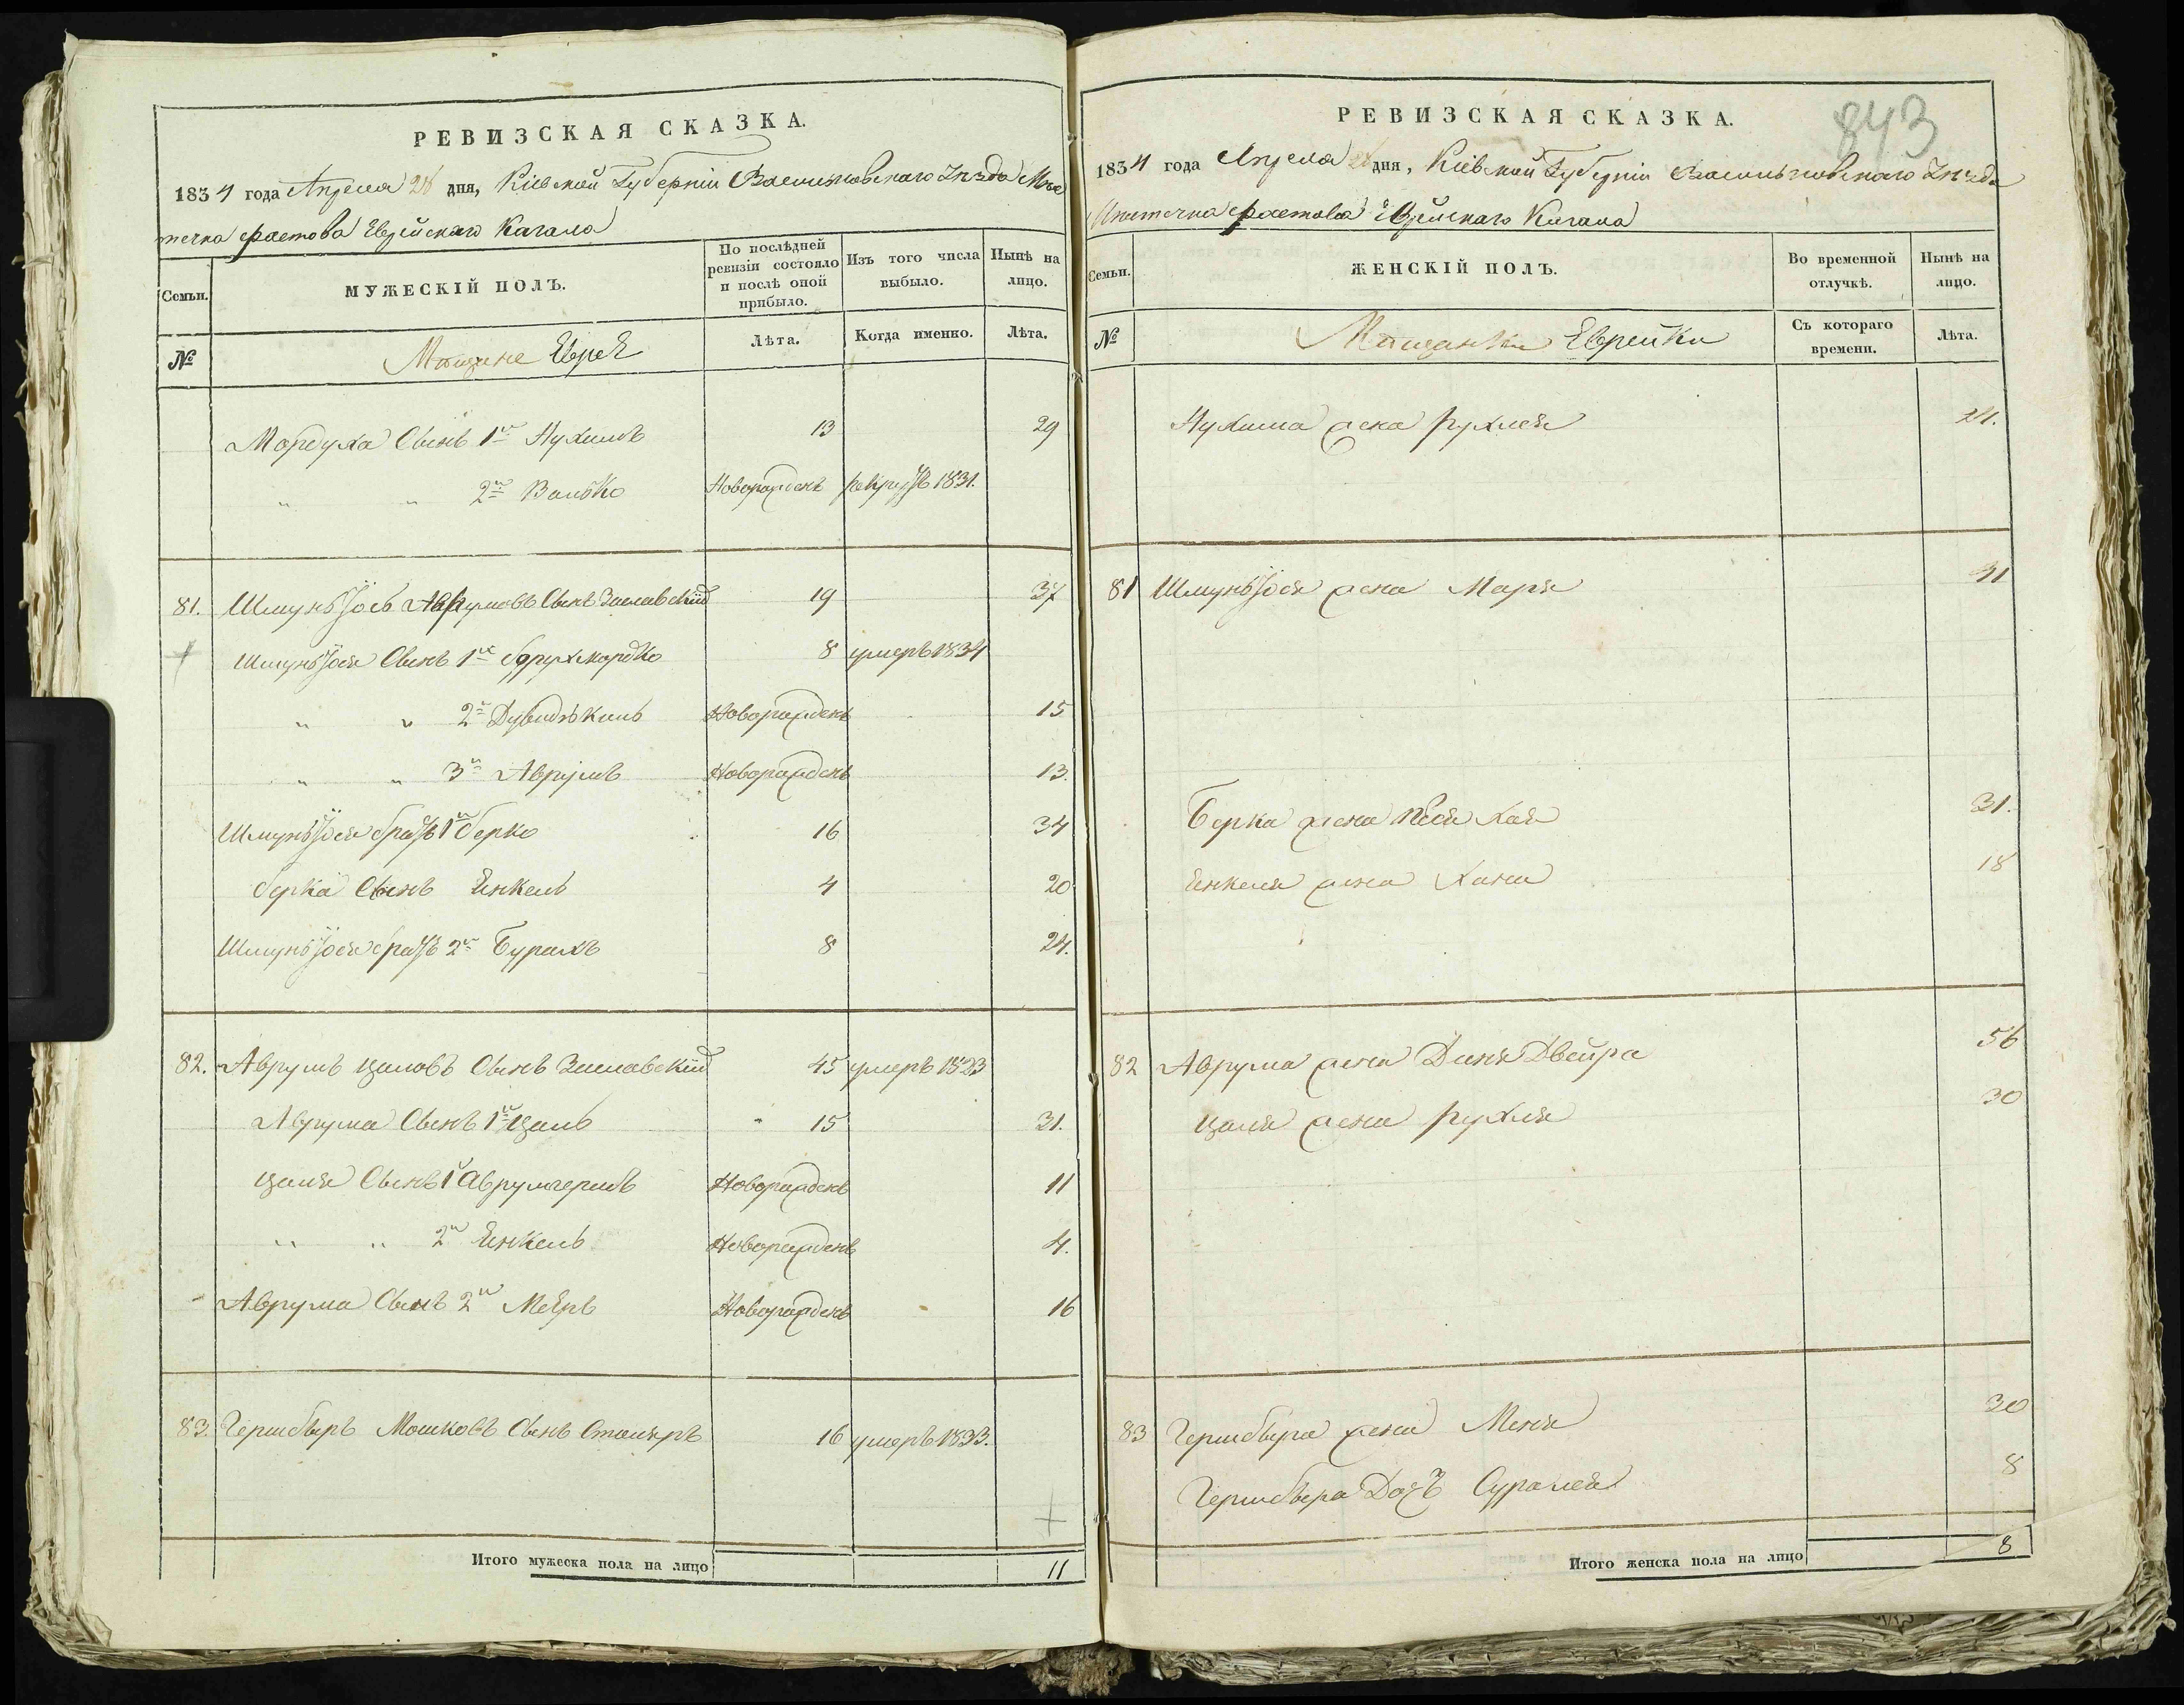 РЕВИЗСКАЯ СКАЗКА.
1834 года Апреля 28 дня, Кіевской Губерніи Васильковскаго Уезда Мѣс
течка Фастова Еврейскаго Кагала
Семьи.
МУЖЕСКІЙ ПОЛЪ.
По послѣдней ревизіи состояло и послѣ оной прибыло.
Изъ того числа выбыло.
Нынѣ на лицо.
№
Мещане Евреи
Лѣта.
Когда именно.
Лѣта.
Мордуха Сынъ 1й Нухимъ 13 29
" " 2й Волько Новорожденъ рекрутъ 1831.
81. Шмунь Іось Аврумовъ Сынъ Заславскій 19 37
Шмунь Іося Сынъ 1й Борухмордко 8 умеръ 1834
" " 2й Дувидъ Киль Новорожденъ 15
" " 3й Аврумъ Новорожденъ 13.
Шмунь Іося братъ 1й Берко 16 34
Берка Сынъ Енкель 4 20
Шмунь Іося братъ 2й Бурахъ 8 24.
82. Аврумъ Цаловъ Сынъ Заславскій 45 умеръ 1823
Аврума Сынъ 1й Цаль 15 31.
Цаля Сынъ 1й Аврумгершъ Новорожденъ 11
" " 2й Енкель Новорожденъ 4.
Аврума Сынъ 2й Меерь Новорожденъ 16
83. Гершберъ Мошковъ Сынъ Столяръ 16 умеръ 1833.
Итого мужеска пола на лицо 11
843
РЕВИЗСКАЯ СКАЗКА.
1834 года Апреля 28 дня, Кіевской Губерніи Васильковскаго Уезда
Мѣстечка Фастова Еврейскаго Кагала
Семьи.
ЖЕНСКІЙ ПОЛЪ.
Во временной отлучкѣ.
Нынѣ на лицо.
№
Мещанки Еврейки
Съ котораго времени.
Лѣта.
Нухима жена Рухля 24.
81 Шмунь Іося жена Маря 31
Берка жена Песя Хая 31.
Енкеля жена Хана 18
82 Аврума жена Диня Двейра 56
Цаля жена Рухля 30
83 Гершбера жена Меня 30
Гершбера Дочь Суралея 8
Итого женска пола на лицо 8